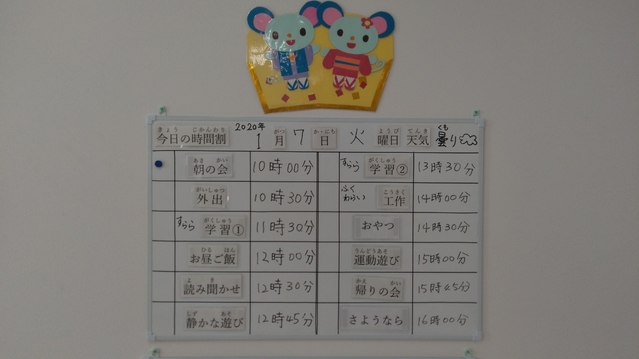 今日の時間割 2020年 1月7日 火曜日 天気 曇り
朝の会 10時00分
外出 10時30分
すらら 学習① 11時30分
お昼ご飯 12時00分
読み聞かせ 12時30分
静かな遊び 12時45分
すらら 学習② 13時30分
工作 14時00分
おやつ 14時30分
運動遊び 15時00分
帰りの会 15時45分
さようなら 16時00分